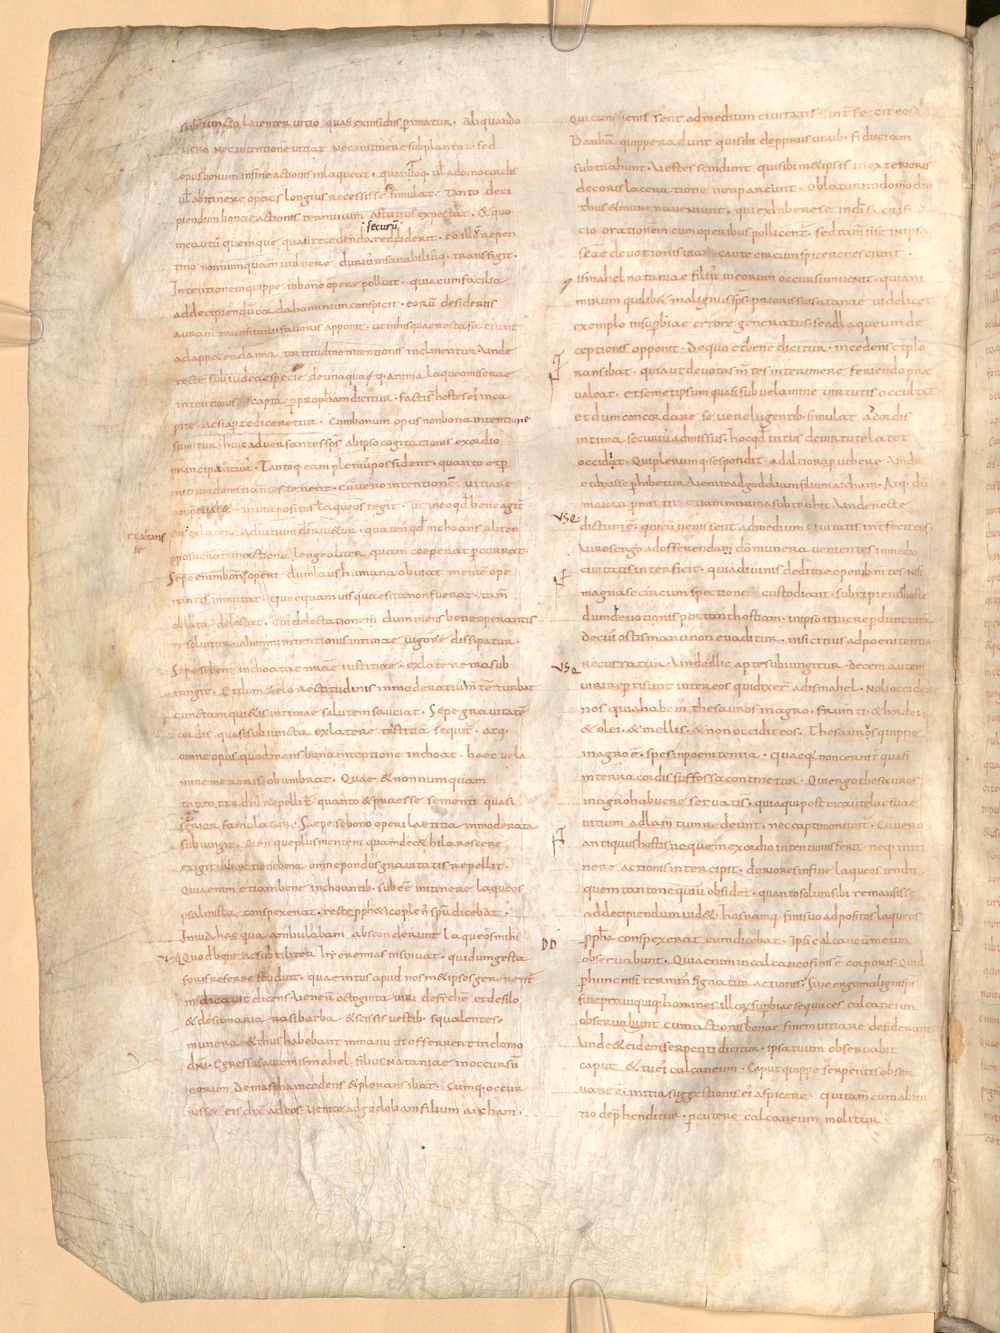 subiuncto latenter uitio quasi ex insidiis perimatur. aliquando
uero nec intentionē uitiat nec in itinere supplantat. sed
opus bonum in fine actionis inlaqueat.
uł ab itinere operis longius recessisse simulat. tanto deci
piendum bonae actionis terminum astutius expectat. & quo
securū
incautū quemque quasi recedendo reddiderit. eo illū repen
tino nonnumquam uulnere durius insanabiliusq; transfigit.
Intentionem quippe in bono opere polluit. quia cum facilia
ad decipiendū corda hominum conspicit. eorū desideriis
auram transitorii fauoris apponit. ut in his quae recta faciunt
ad appetenda ima tortitudine intentionis inclinentur. Unde
recte sub iudeae specie de unaquaq; anima laqueo miserae
intentionis capta per prophetam dicitur. facti sunt hostes ei in ca
pite. ac si aperte diceretur. Cum bonum opus non bona intentione
sumitur. huic aduersantes sp̄s ab ipso cogitationis exordio
principantur. Tantoq; eam plenius possident. quanto et per
initium dominantes tenent. Cū uero intentionem uitiare
non ualent in uia positos laqueos tegit. ut in eo qd bene agit
ex latere ad uitium diriuetur. quatenus qd inchoans aliter
proposuerat in actione longe aliter quam coeperat percurrat.
Sepe enim bono operi dum laus humana obuiat mentē ope
rantis inmutat. quae quamuis quaesita non fuerat. tam̄
oblata delectat. Cui delectatione dum mens bene operantis
resoluitur. ab omni intentionis intimae uigore dissipatur.
Sepe se bene inchoatae nr̄ae iustitiae. ex latere ira sub
iungit. Et dum zelo rectitudinis inmoderatius mentē turbat
cunctam quietis intimae salutem sauciat. Sepe grauitatē
cordis quasi subiuncta ex latere tristitia sequitur. atq;
omne opus quod mens bona intentione inchoat. haec uela
mine meroris obumbrat. Quae & nonnumquam
tanto tardius repellitur quanto & praesse menti quasi
serior famulatur. Saepe se bono operi laetitia inmoderata
subiungit. Cumque plus mentem quam decet hilarescere
exigit. ab actione bona omne pondus grauitatis repellit.
Quia enim etiam bene inchoantib; subesse in itinere laqueos
psalmista conspexerat. recte prophetico plenus spū dicebat.
In uia hac qua ambulabam absconderunt laqueos mihi
Quod bene ac subtiliter hieremias insinuat. qui dum gesta
foris referre studuit. quae intus apud nosm&ipsos gererent̄
indicauit dicens. Uener̄ octoginta uiri de sichē et de silo
& de samaria rasi barba & scissis uestib; squalentes.
munera & thus habebant in manu ut offerrent in domo
dn̄i. Egressus autem ismahel filius nataniae in occursū
eorum de masphat incedens & plorans ibat. Cumq; occur
risset eis dix̄ ad eos uenite ad godoliam filium aicham.
qui cum uenissent ad medium ciuitatis interfecit eos
Barbā quippe radunt qui sibi de ppriis uirib; fiduciam
subtrahunt. Uestes scindunt qui sibimetipsis in exterioris
decoris laceratione non parcunt. Oblaturi in domo dn̄i
thus & munera ueniunt. qui exhibere se in dei sacrifi
cio orationem cum operibus pollicent̄. sed tamen si se in ipsa
scāe deuotionis uia caute circumspicere nesciunt.
ismahel nataniae filius in eorum occursum uenit. quia ni
mirum quilib& malignus sp̄s prioris sui satanae uidelicet
exemplo in superbiae errore generatus. se ad laqueum de
ceptionis opponit. De quo et bene dicitur. incedens et plo
rans ibat. quia ut deuotas mentes interimere feriendo prae
ualeat. et semetipsum quasi sub uelamine uirtutis occultat
et dum concordare se uere lugentib; simulat ad cordis
intima securius admissus. hoc qd intus de uirtute latet
occidit. Qui plerumq; se spondet ad altiora perducere. Unde
et dixisse perhibetur. Uenite ad godoliam filium aicham. Atq; dū
maiora promittit etiam minima subtrahit. Unde recte
dictum ē. qui cū uenissent ad medium ciuitatis interfecit eos.
Uiros ergo ad offerendam dō munera uenientes in medio
ciuitatis interficit. quia diuinis deditae operib; mentes. nisi
magna se circumspectione custodiant. subripiente hoste
dum deuotionis portant hostiam. in ipso itinere perdunt uitā.
De cuius hostis manu non euaditur. nisi citius ad poenitentiā
recurratur. Unde illic apte subiungitur. decem autem
uiri reperti sunt inter eos qui dixer̄ ad ismahel. Noli occidere
nos quia habemus thesauros in agro. frumenti & hordei
& olei. & mellis. & non occidit eos. Thesauros quippe
in agro ē. spes in poenitentia. quae quia non cernitur quasi
in terra cordis suffossa continetur. Qui ergo thesauros
in agro habuere seruati sunt. quia qui post incautelae suae
uitium ad lamentum redeunt. nec capti moriunt̄. Cū uero
antiquus hostis neque in exordio intentionis ferit. neq; in iti
nere actionis intercipit. duriores in fine laqueos tendit.
quem tanto nequius obsidet. quanto solum sibi remansisse
ad decipiendum uidet. hos namq; fini suo adpositos laqueos
propheta conspexerat cum dicebat. Ipsi calcaneum meum
obseruabunt. Quia enim in calcaneo finis est corporis. quid
per hunc nisi terminus signatur actionis. Siue ergo maligni sp̄s
siue praui quiq; homines illorū superbiae sequaces calcaneum
obseruabunt cum actionis bonae finem uitiare desiderant
Unde & eidem serpenti dicitur. ipsa tuum obseruabit
caput. & tu ei calcaneum. Caput quippe serpentis obser
uare ē. initia suggestionis ei' aspicere. qui tam cum a boni
tio deprehenditur. percutere calcaneum molitur.
DD